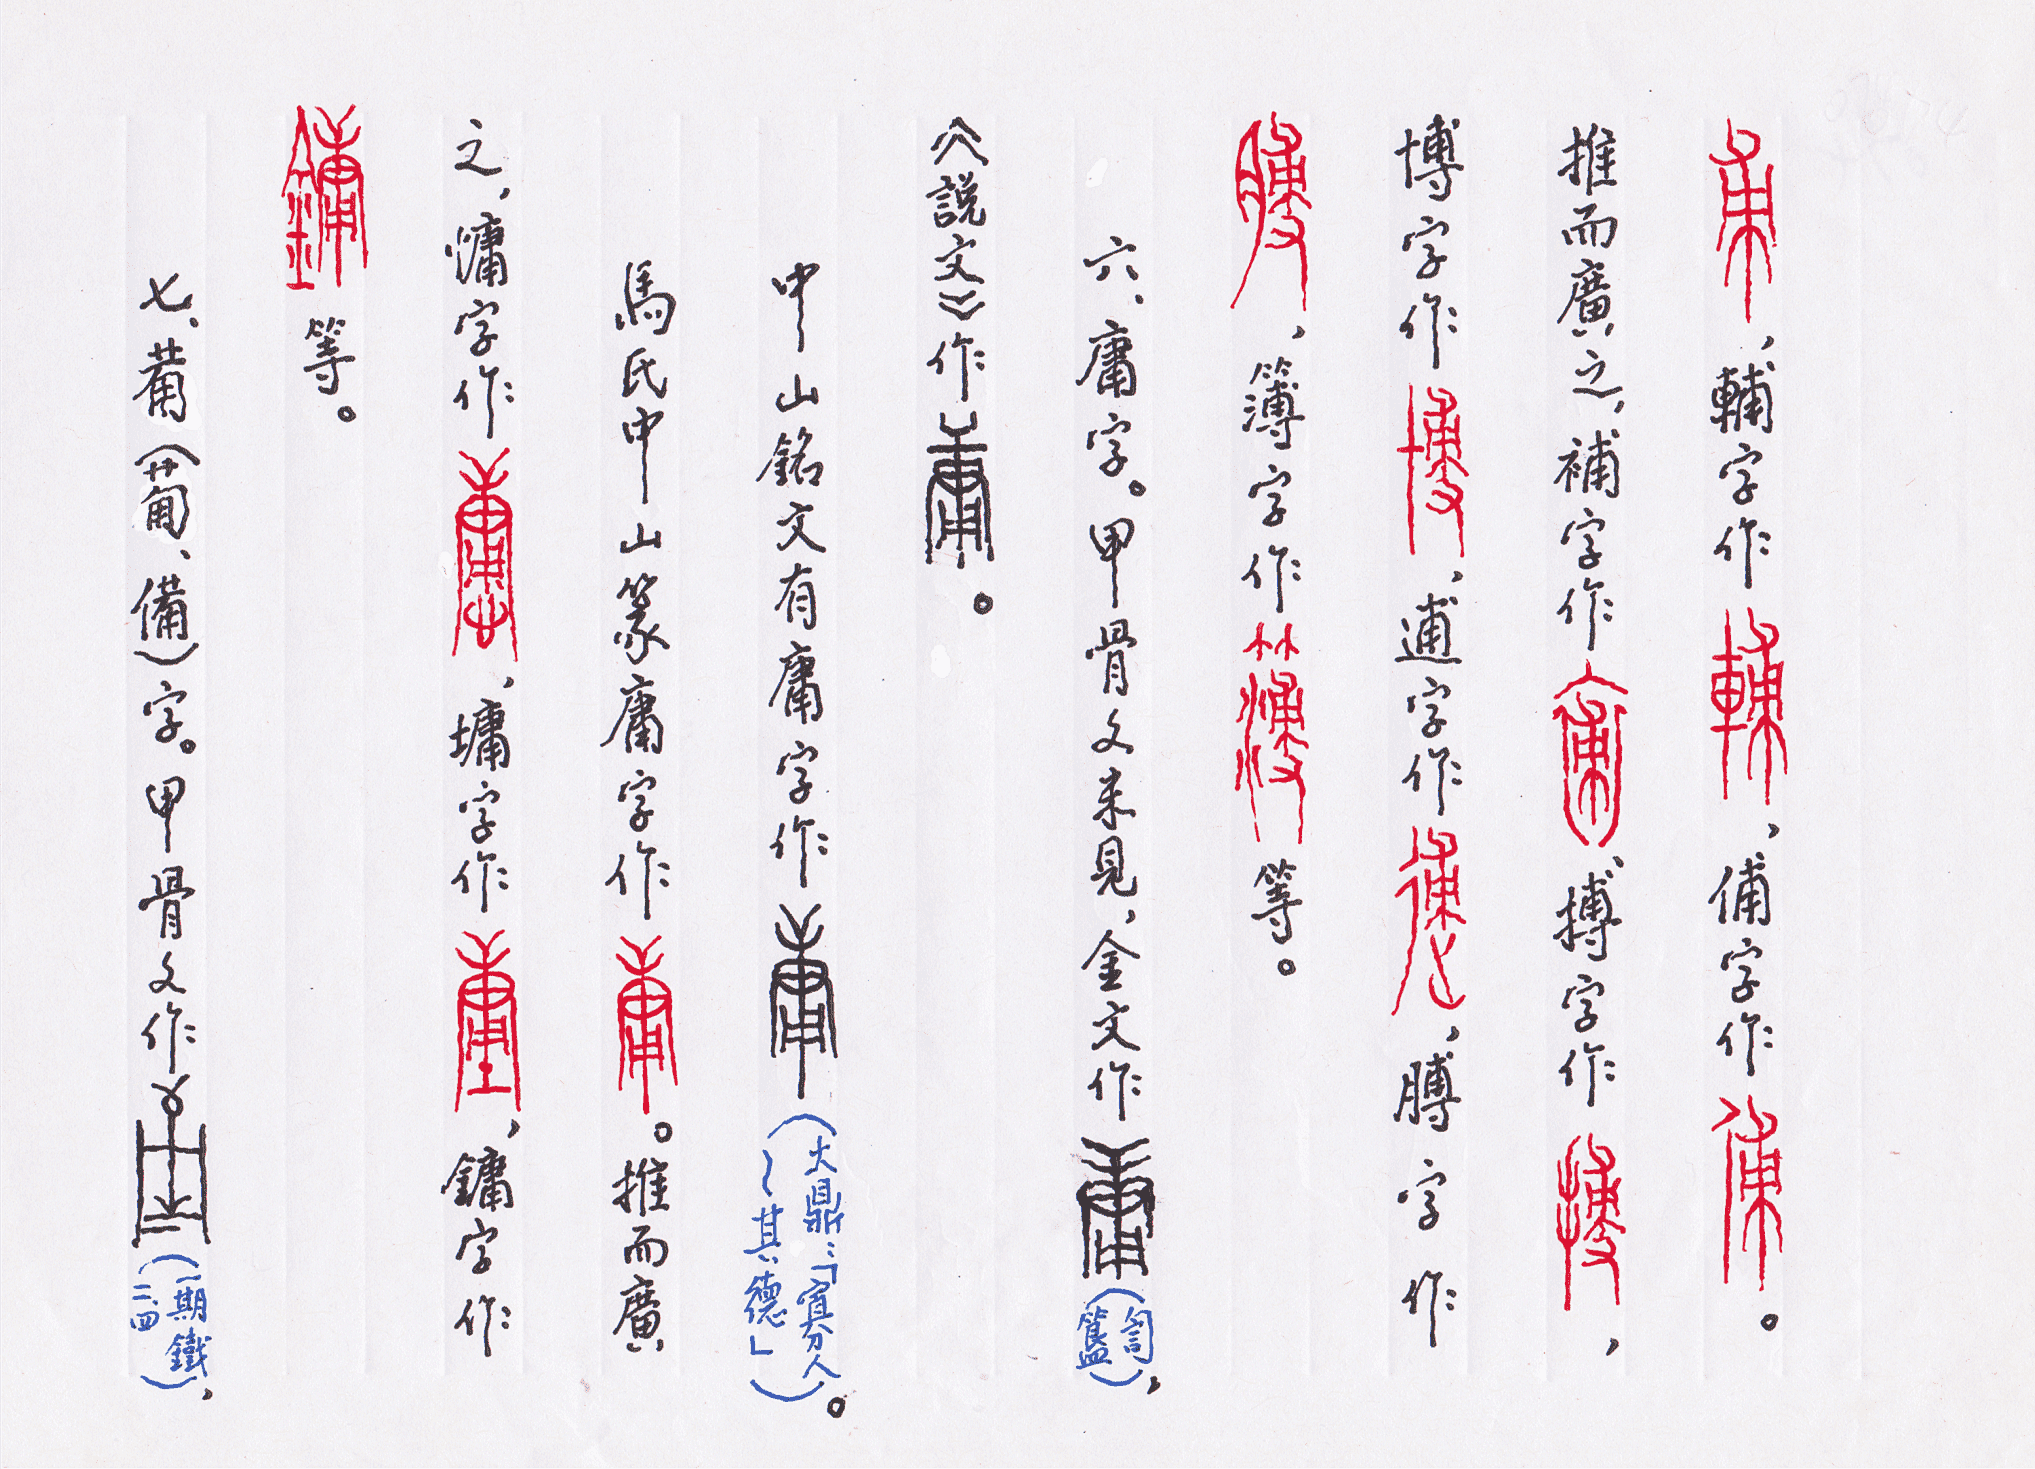 甫，輔字作輔，俌字作俌。
推而廣之，補字作補、搏字作搏，
博字作博，逋字作逋，膊字作
膊，簿字作簿等。
六、庸字。甲骨文未見，金文作庸（訇簋），
《説文》作庸。
中山銘文有庸字作庸（大鼎：「寡人～其德」）。
馬氏中山篆庸字作庸。推而廣
之，慵字作慵，墉字作墉，鏞字作
鏞等。
七、𤰇（葡、備）字。甲骨文作𤰇（一期鐵二.四），